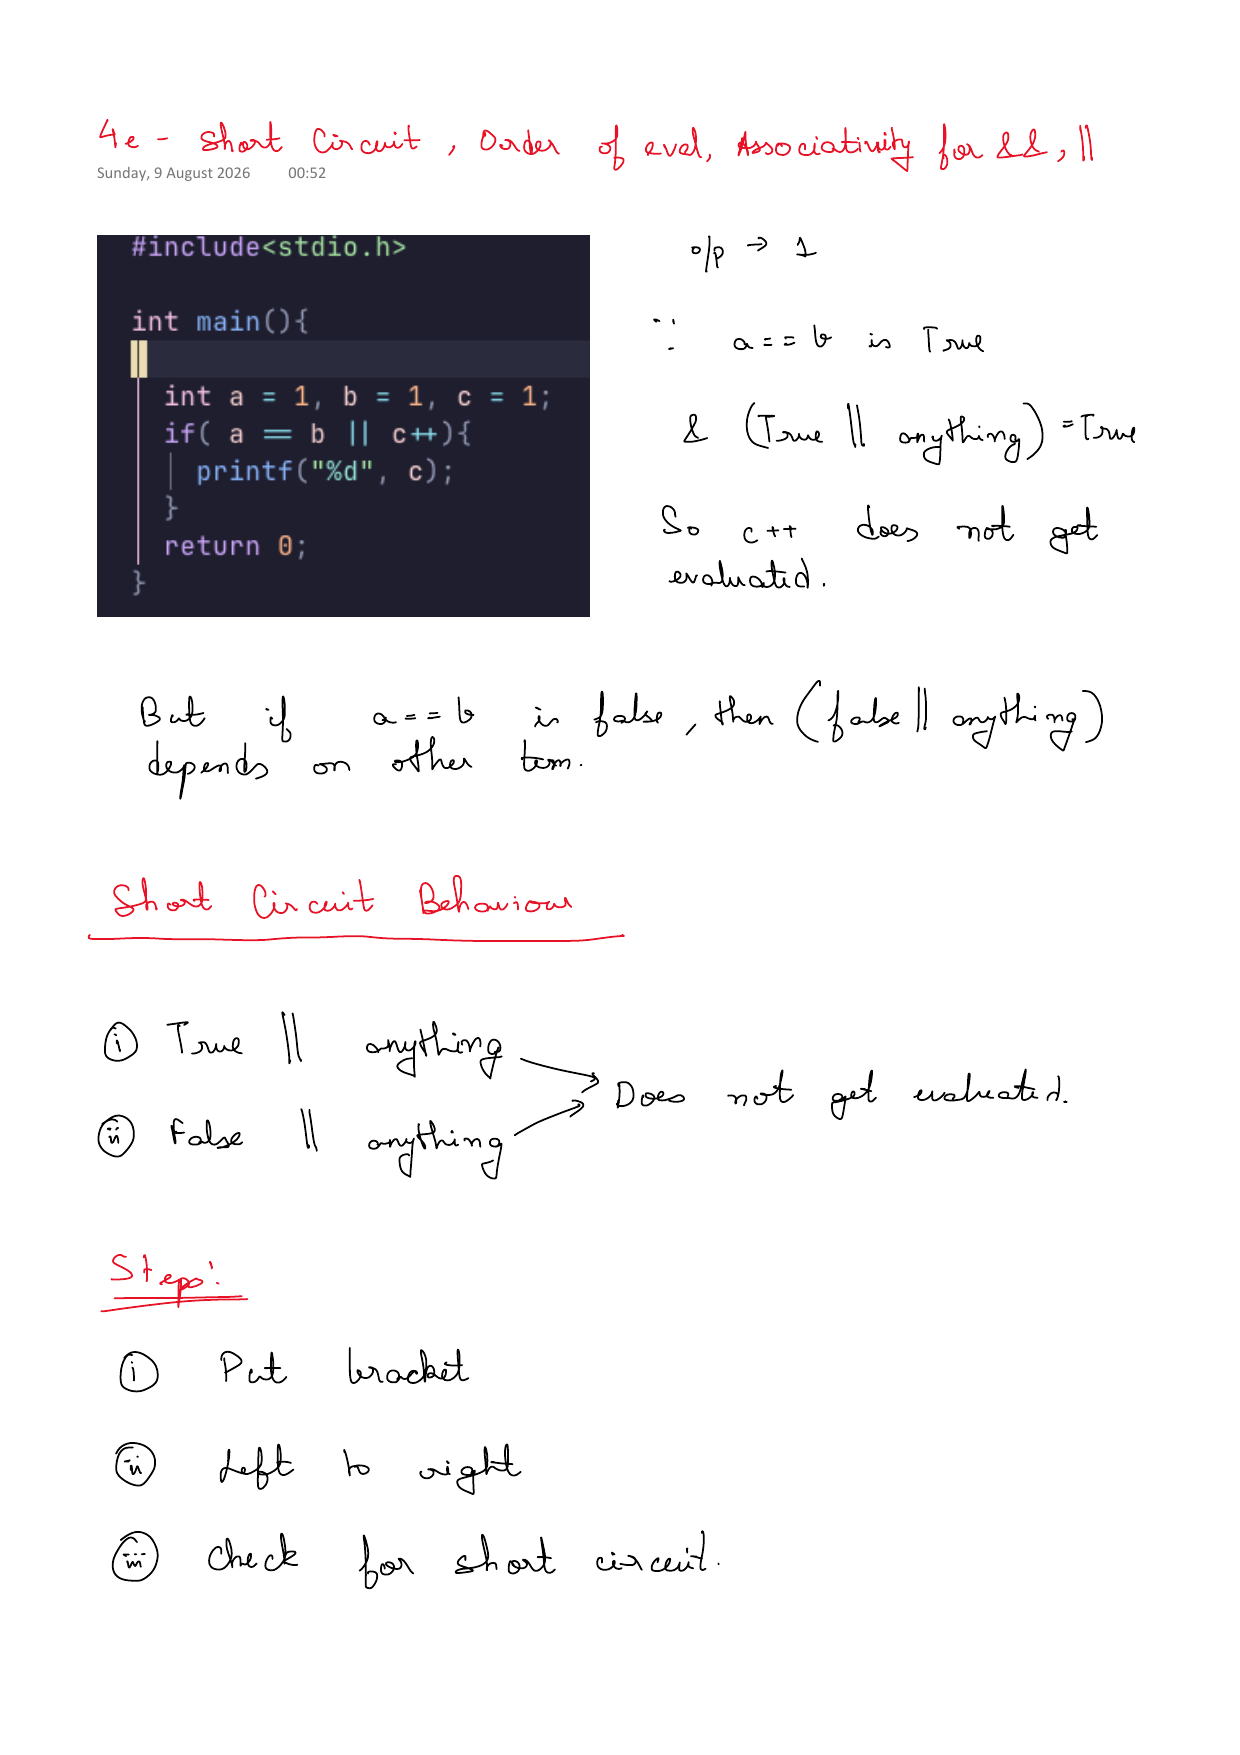 4e - Short Circuit, Order of eval, Associativity for &&, ||
Sunday, 9 August 2026 00:52
#include<stdio.h>
int main(){
int a = 1, b = 1, c = 1;
if( a == b || c++){
printf("%d", c);
}
return 0;
}
o/p → 1
∵ a == b is True
& (True || anything) = True
So c++ does not get
evaluated.
But if a == b is false, then (false || anything)
depends on other term.
Short Circuit Behaviour
(i) True || anything
(ii) False || anything
Does not get evaluated.
Steps:
(i) Put bracket
(ii) Left to right
(iii) Check for short circuit.